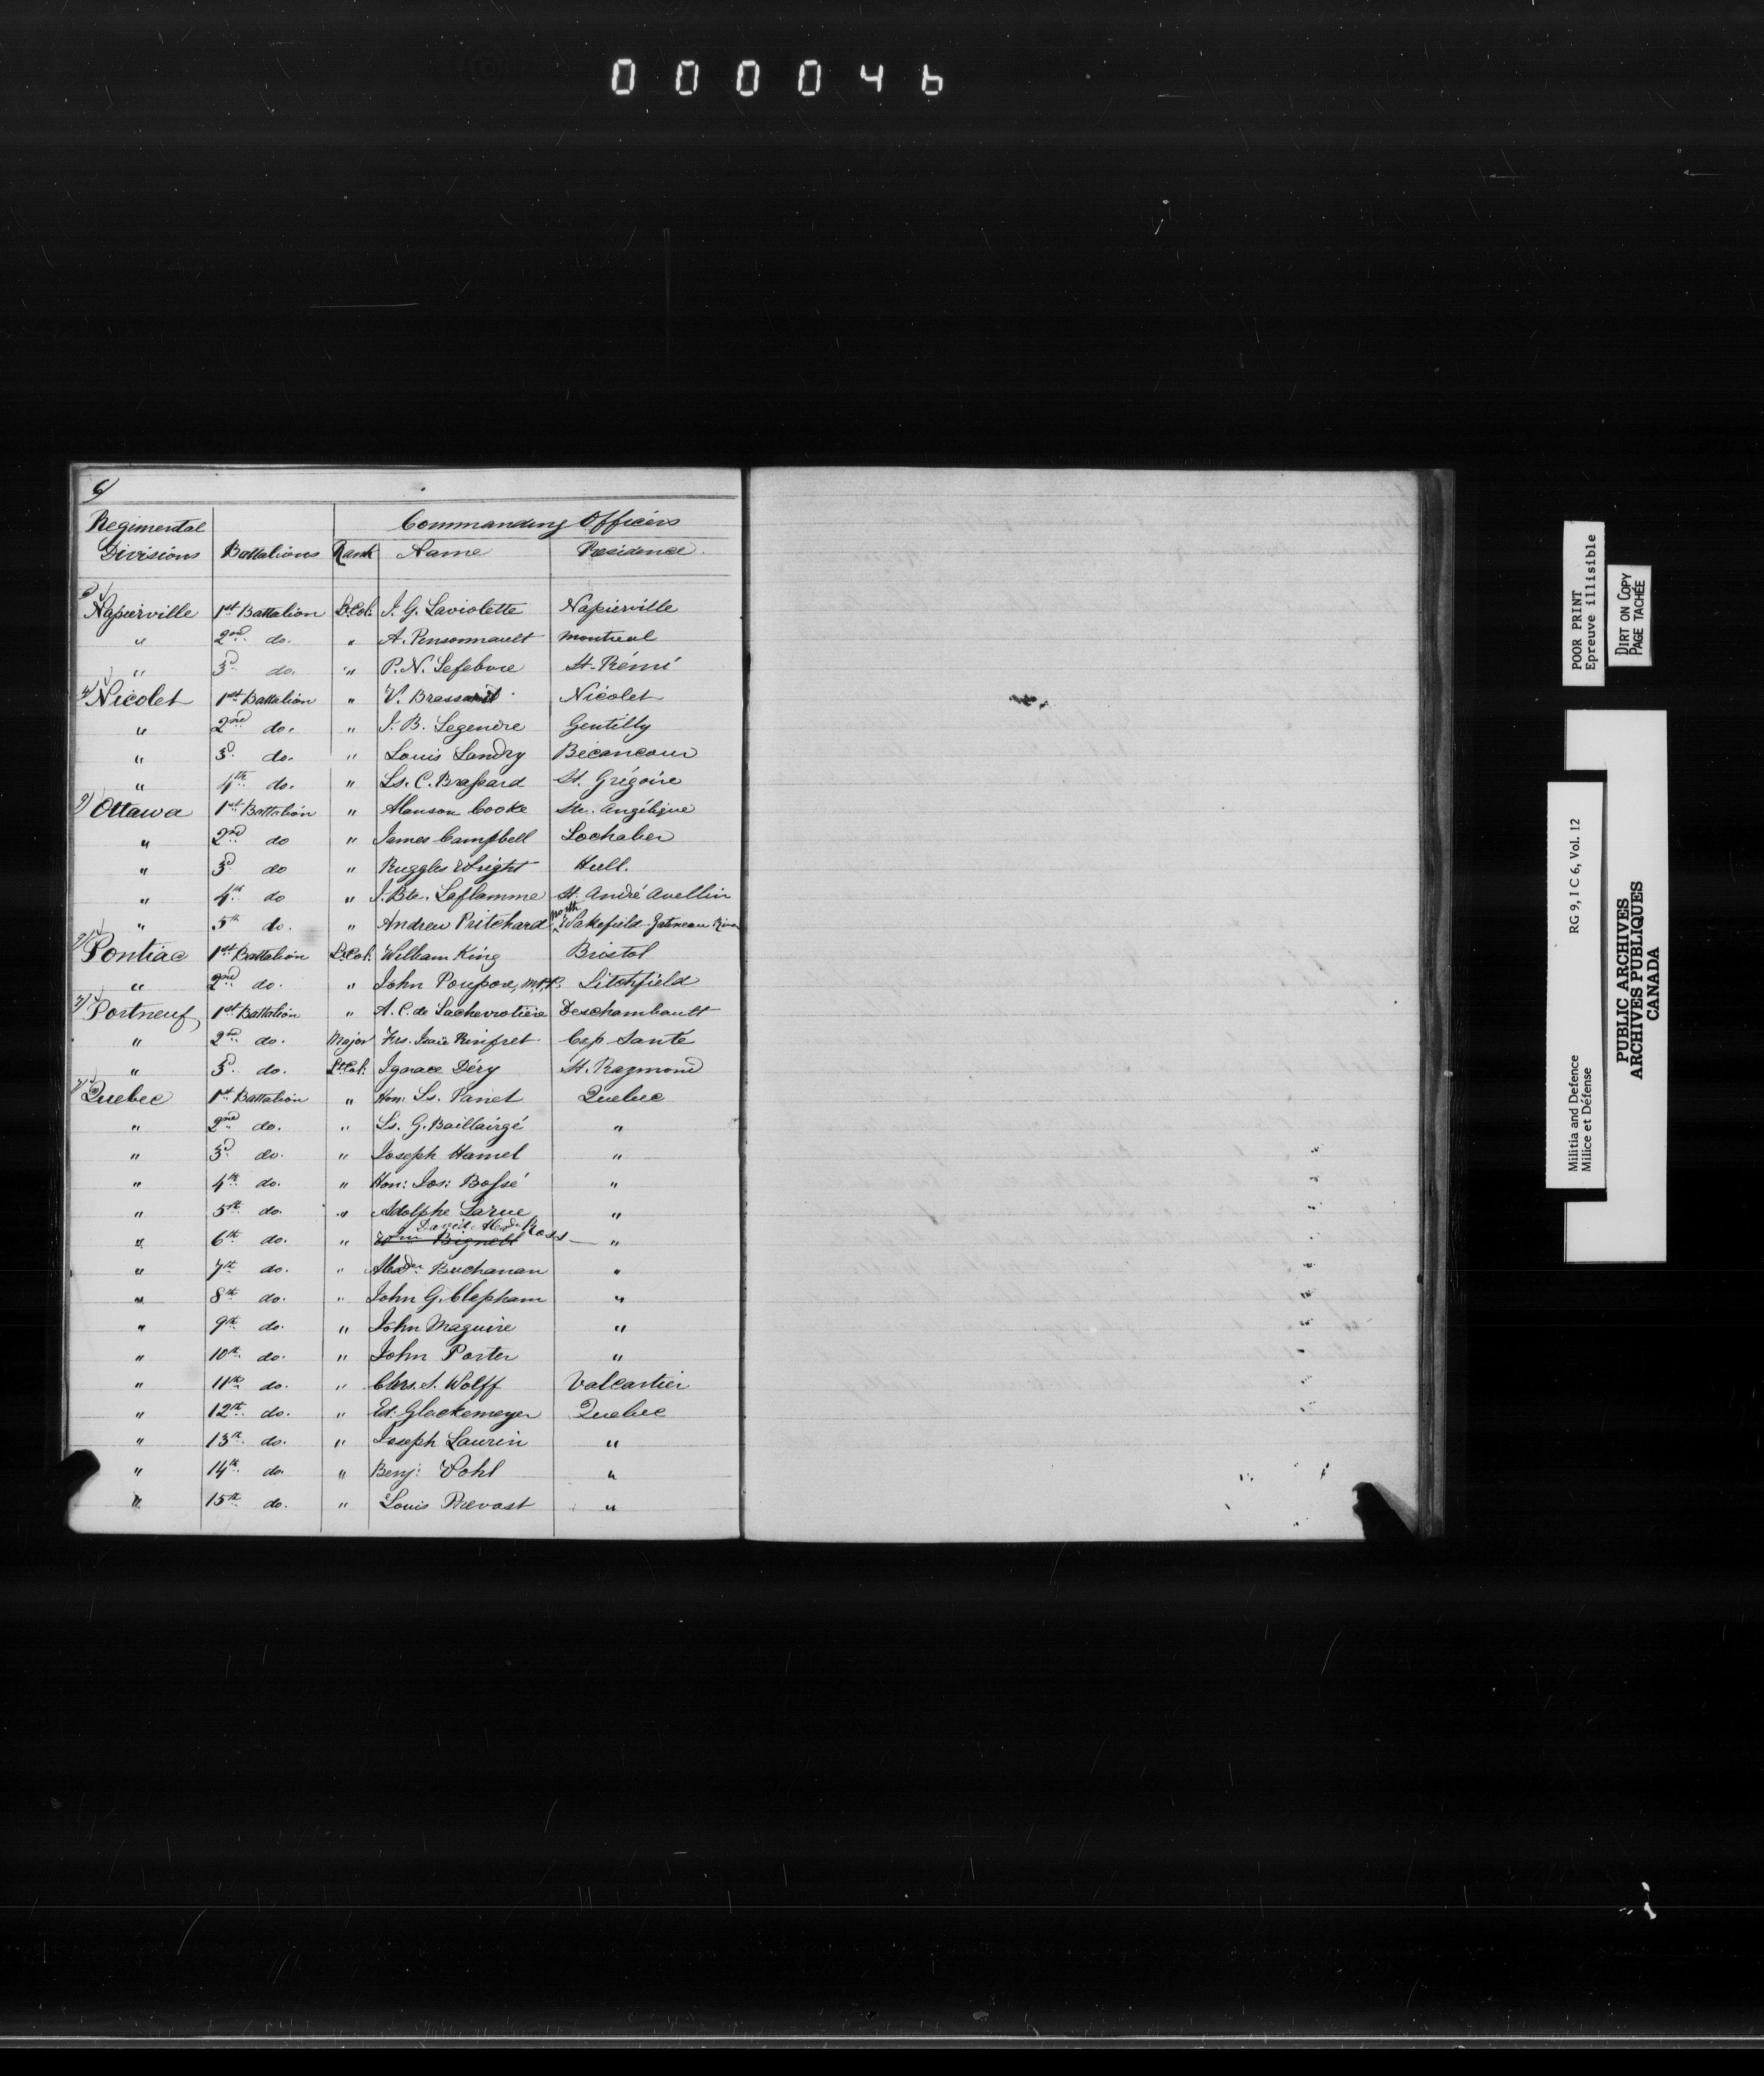 000046
6/
Regimental Divisions Battalions Commanding Officers
Rank Name Residence.
Napierville 1st Battalion Lt. Col. J. G. Laviolette Napierville
" 2nd do. " A. Pinsonnault Montreal
" 3d do. " P. N. Lefebvre St. Rémi
Nicolet 1st Battalion " V. Brassard Nicolet
" 2nd do. " J. B. Legendre Gentilly
" 3d do. " Louis Landry Bécancour
" 4th do. " Ls. C. Brassard St. Grégoire
Ottawa 1st Battalion " Alanson Cooke Ste. Angélique
" 2nd do " James Campbell Lochaber
" 3d do " Ruggles Wright Hull.
" 4th do " J. Bte. Leflamme St. André Avellin
" 5th do. " Andrew Pritchard North Wakefield Gatineau River
Pontiac 1st Battalion Lt. Col. William King Bristol
" 2nd do. " John Poupore, M.P.P. Litchfield
Portneuf 1st Battalion " A. C. de Lachevrotière Deschambault
" 2nd do. Major Frs. Isaïe Rinfret Cap Santé
" 3d do. Lt. Col. Ignace Déry St. Raymond
Quebec 1st Battalion " Hon: Ls. Panet Quebec
" 2nd do. " Ls. G. Baillairgé "
" 3d do. " Joseph Hamel "
" 4th do. " Hon: Jos: Bossé "
" 5th do. " Adolphe Larue "
David Alexdr Ross
" 6th do. " Wm Bignell "
" 7th do. " Alexdr Buchanan "
" 8th do. " John G. Clapham "
" 9th do. " John Maguire "
" 10th do. " John Porter "
" 11th do. " Chrs. S. Wolff Valcartier
" 12th do. " Ed: Glackemeyer Quebec
" 13th do. " Joseph Laurin "
" 14th do. " Benj: Pohl "
" 15th do. " Louis Prevost "
POOR PRINT
Epreuve illisible
DIRT ON COPY
PAGE TACHÉE
Militia and Defence
Milice et Défense
RG 9, I C 6, Vol. 12
PUBLIC ARCHIVES
ARCHIVES PUBLIQUES
CANADA